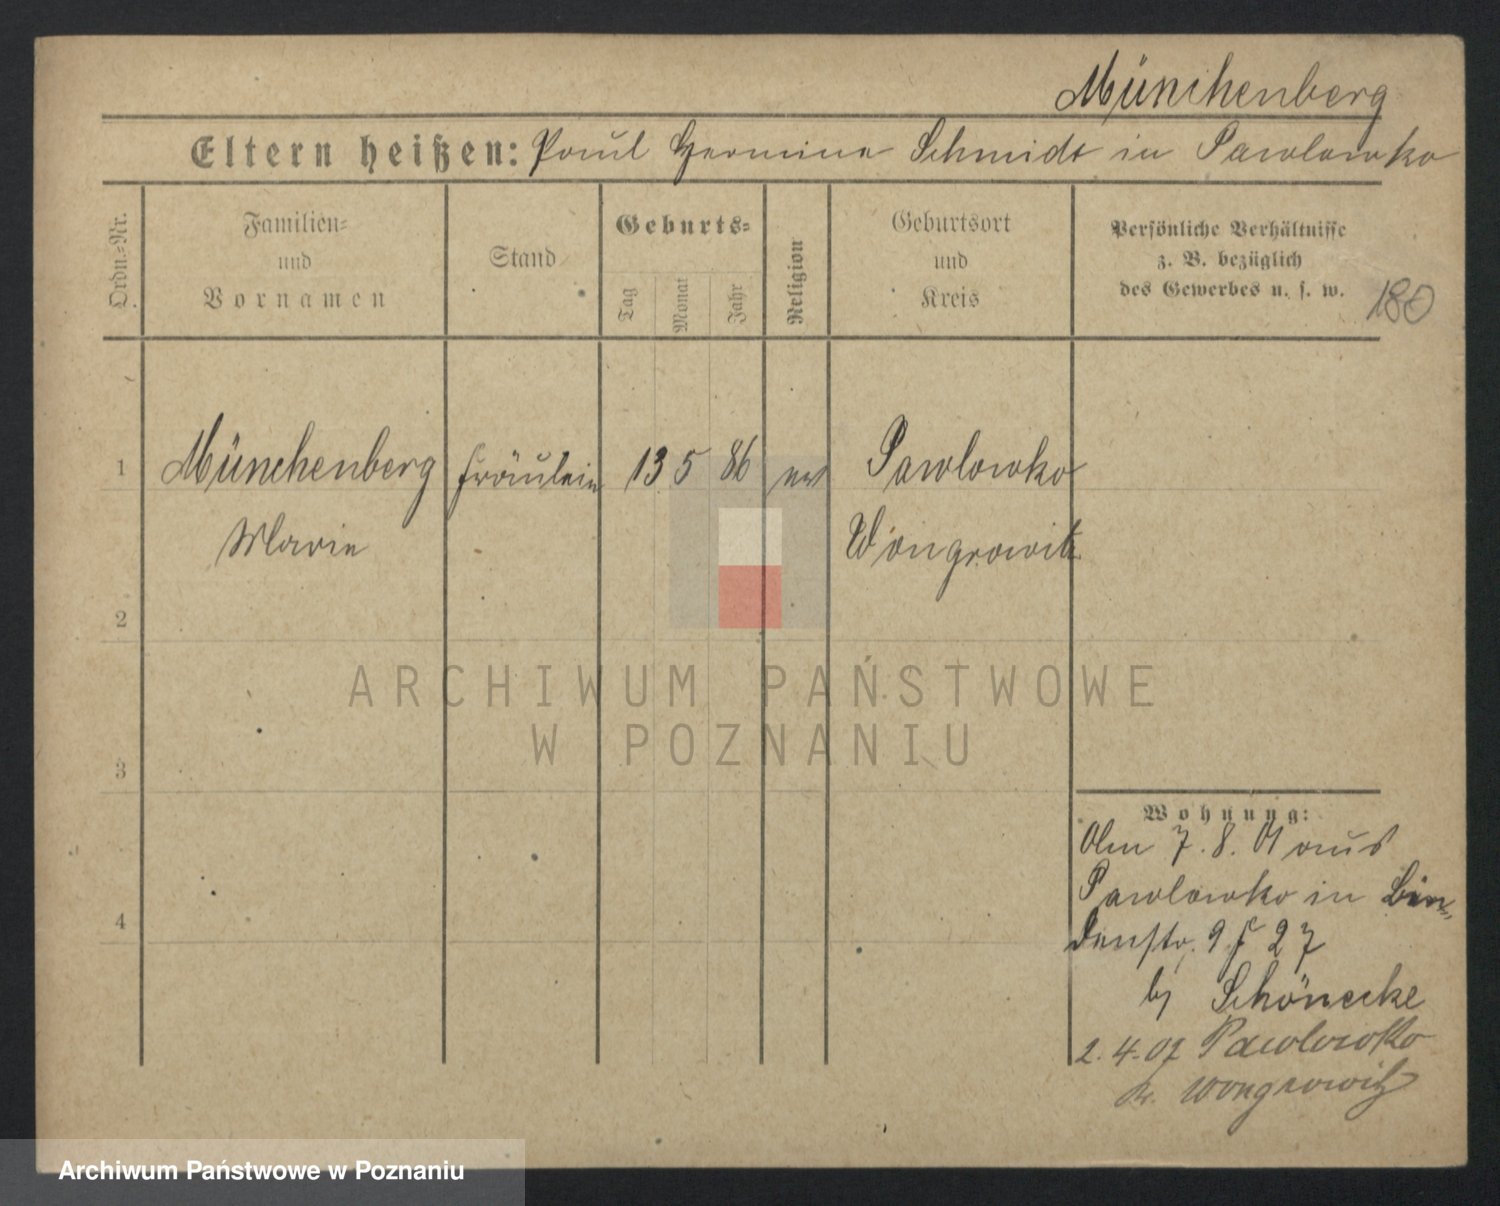 Münchenberg
Eltern heißen: Paul Hermine Schmidt in Pawlowko
Ordn.-Nr.
Familien-
und
Vornamen
Stand
Geburts-
Tag
Monat
Jahr
Religion
Geburtsort
und
Kreis
Persönliche Verhältnisse
z. B. bezüglich
des Gewerbes u. s. w.
180
1 Münchenberg Fräulein 13 5 86 ev Pawlowko
Marie Wongrowitz
2
ARCHIWUM PAŃSTWOWE
W POZNANIU
3
Wohnung:
Am 7. 8. 01 aus
Pawlowko in
9 27
bj Schönecke
2. 4. 02 Pawlowko
Kr. Wongrowitz
4
Archiwum Państwowe w Poznaniu